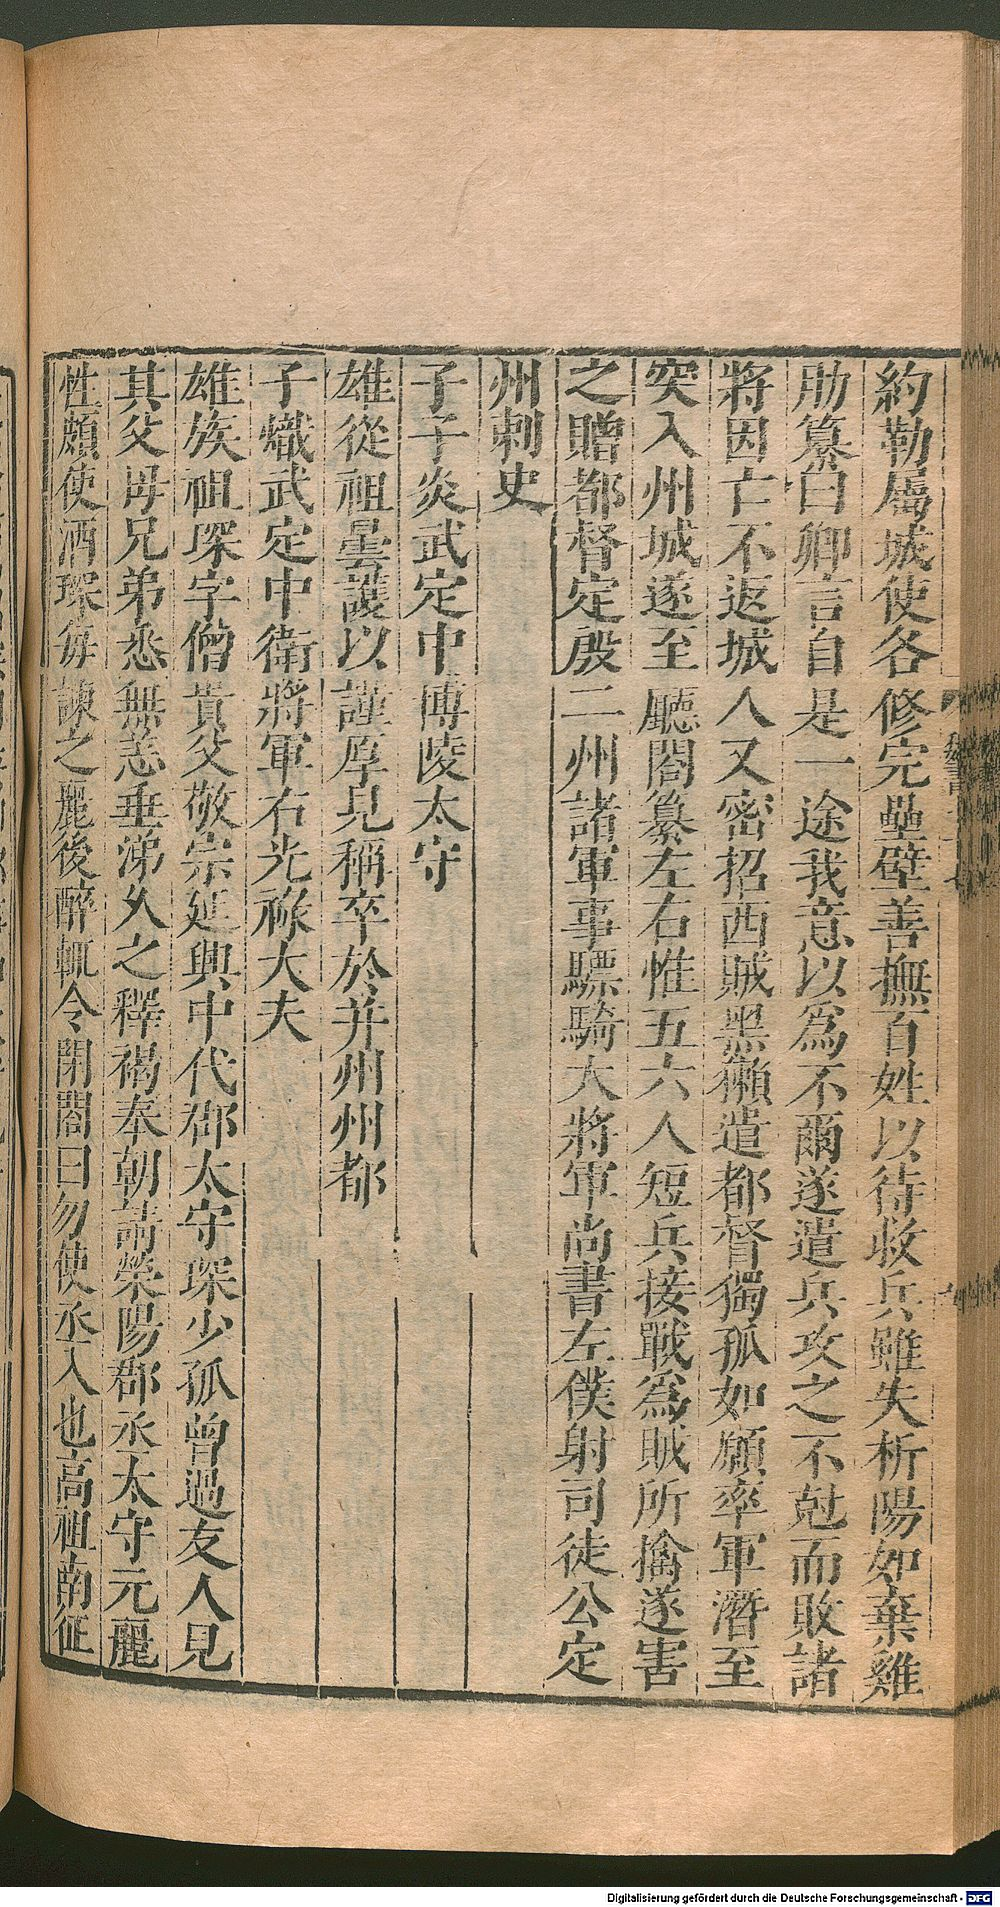 約勒屬城使各修完壘壁善撫百姓以待救兵雖失析陽如棄雞
肋纂曰卿言自是一途我意以爲不爾遂遣兵攻之不尅而敗諸
將因亡不返城人又密招西賊黑獺遣都督獨孤如願率軍潛至
突入州城遂至廳閤纂左右惟五六人短兵接戰爲賊所擒遂害
之贈都督定殷二州諸軍事驃騎大將軍尚書左僕射司徒公定
州刺史
子子炎武定中博陵太守
雄從祖曇護以謹厚見稱卒於并州州都
子熾武定中衛將軍右光祿大夫
雄族祖琛字僧貴父敬宗延興中代郡太守琛少孤曾過友人見
其父母兄弟悉無恙垂涕久之釋褐奉朝請滎陽郡丞太守元麗
性頗使酒琛每諫之麗後醉輒令閉閤曰勿使丞入也高祖南征
Digitalisierung gefördert durch die Deutsche Forschungsgemeinschaft - DFG